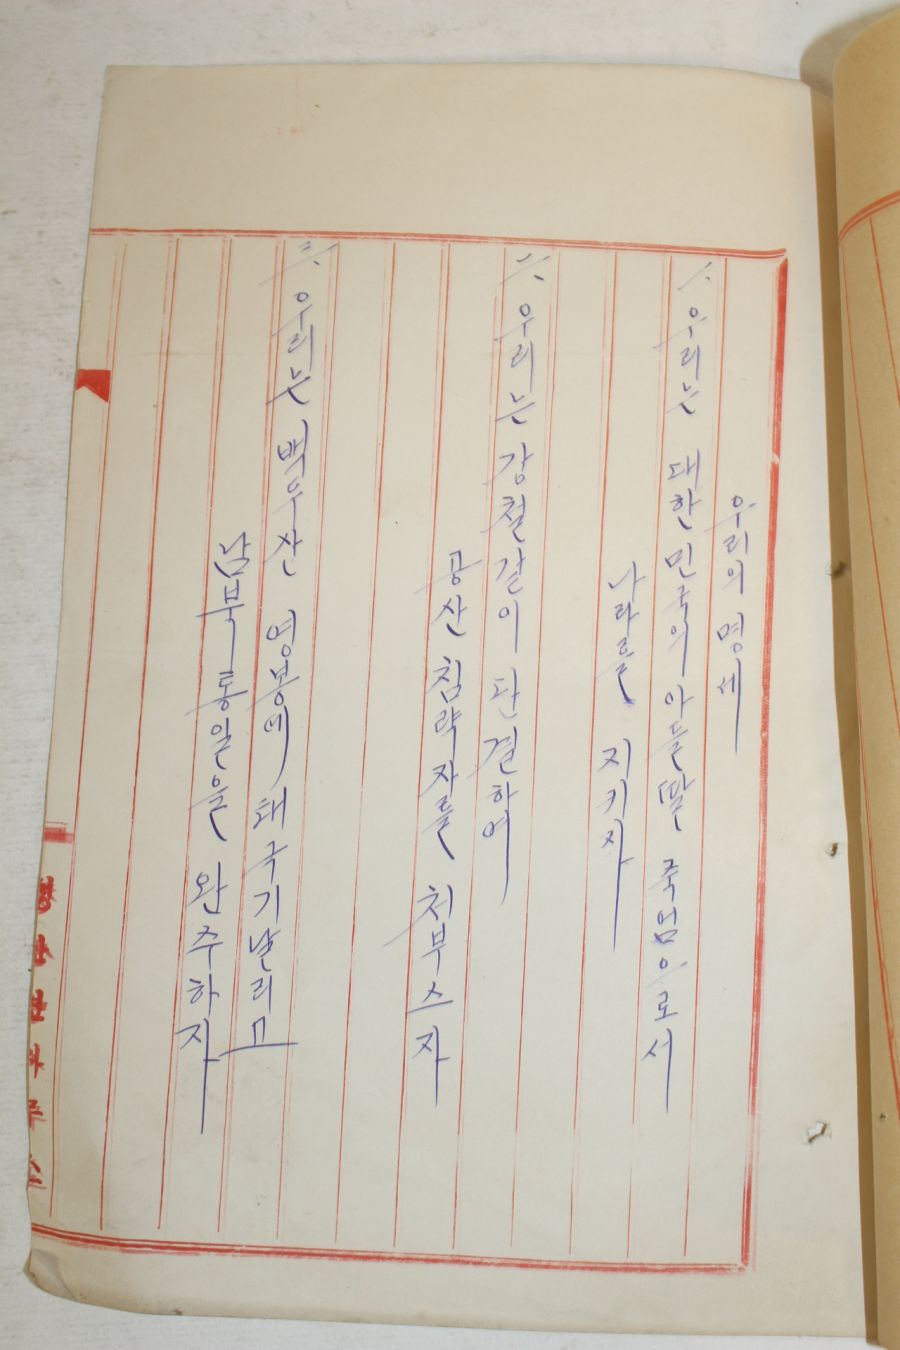 우리의 명세
一、우리는 대한민국의 아들딸 죽엄으로서
나라를 지키자
二、우리는 강철같이 단결하여
공산 침략자를 처부스자
三、우리는 백우산 영봉에 태국기날리고
남북통일을 완수하자